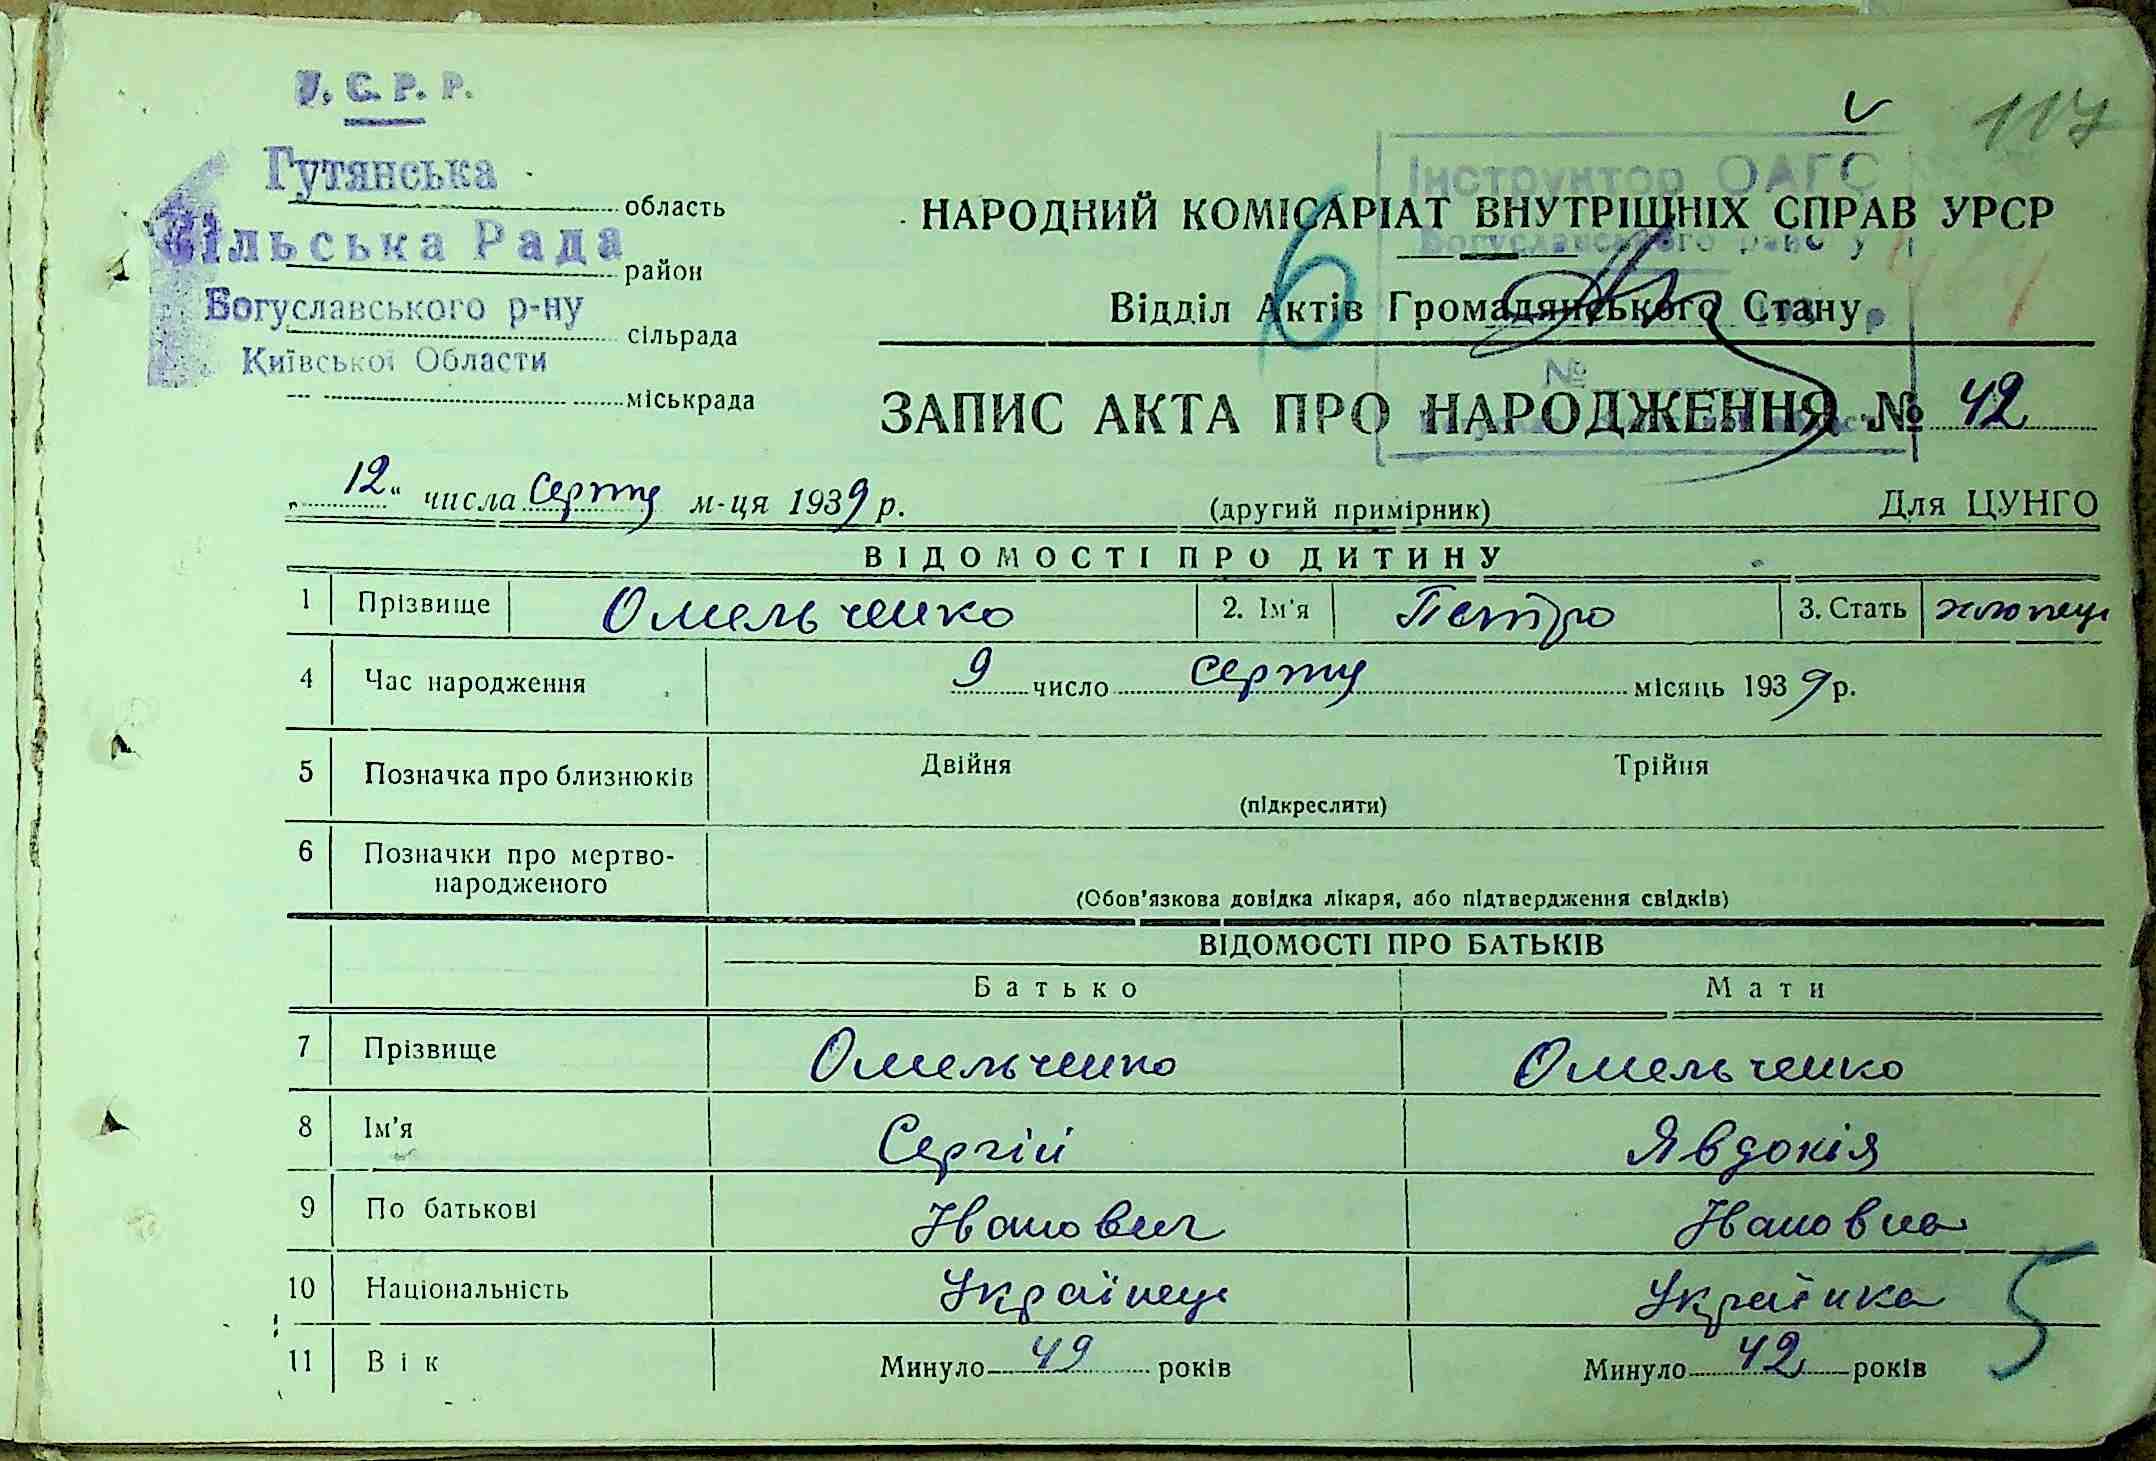 У. С. Р. Р.
117
Гутянська
область
Сільська Рада
район
Богуславського р-ну
сільрада
Київської Области
міськрада
Інструктор ОАГС
НАРОДНИЙ КОМІСАРІАТ ВНУТРІШНІХ СПРАВ УРСР
Богуславського
6
Відділ Актів Громадянського Стану
№
ЗАПИС АКТА ПРО НАРОДЖЕННЯ № 42
„12“ числа серпня м-ця 1939 р. (другий примірник) Для ЦУНГО
ВІДОМОСТІ ПРО ДИТИНУ
1 Прізвище Омельченко 2. Ім'я Петро 3. Стать хлопець
4 Час народження 9 число серпня місяць 1939 р.
5 Позначка про близнюків Двійня Трійня
(підкреслити)
6 Позначки про мертво-
народженого
(Обов'язкова довідка лікаря, або підтвердження свідків)
ВІДОМОСТІ ПРО БАТЬКІВ
Батько Мати
7 Прізвище Омельченко Омельченко
8 Ім'я Сергій Явдокія
9 По батькові Іванович Івановна
10 Національність Українець Українка
5
11 Вік Минуло 49 років Минуло 42 років